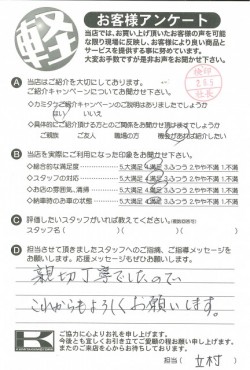 軽
お客様アンケート
当店では、お買い上げ頂いたお客様の声を可能な限り現場に反映し、お客様により良い商品とサービスを提供する事に努めています。
大変お手数ですが是非お声をお聞かせ下さい。
A 当店はご紹介を大切にしております。
ご紹介キャンペーンについてお聞かせ下さい
◇カミタなご紹介キャンペーンのご説明はありましたでしょうか
はい いいえ
◇具体的にご紹介頂ける方とのご関係をお聞かせ頂けますでしょうか
ご親族 ご友人 職場の方 機会があれば紹介したい
B 当店を実際にご利用になった印象をお聞かせ下さい。
◇総合的な満足度 5.大満足 4.満足 3.ふつう 2.やや不満 1.不満
◇スタッフの対応 5.大満足 4.満足 3.ふつう 2.やや不満 1.不満
◇お店の雰囲気、清掃 5.大満足 4.満足 3.ふつう 2.やや不満 1.不満
◇納車時のお車の状態 5.大満足 4.満足 3.ふつう 2.やや不満 1.不満
C 評価したいスタッフがいれば教えてください。(複数回答可)
スタッフ名( )( )
D 担当させて頂きましたスタッフへのご指摘、ご指導メッセージをお願いします。応援メッセージもぜひお聞かせ下さい
親切丁寧でしたので、
これからもよろしくお願いします。
K
ご協力に心よりお礼を申し上げます。
今後とも宜しくお引き立てご愛顧の程お願い申し上げます。
またのご来店を心からお待ちしております。
担当( 立村 )